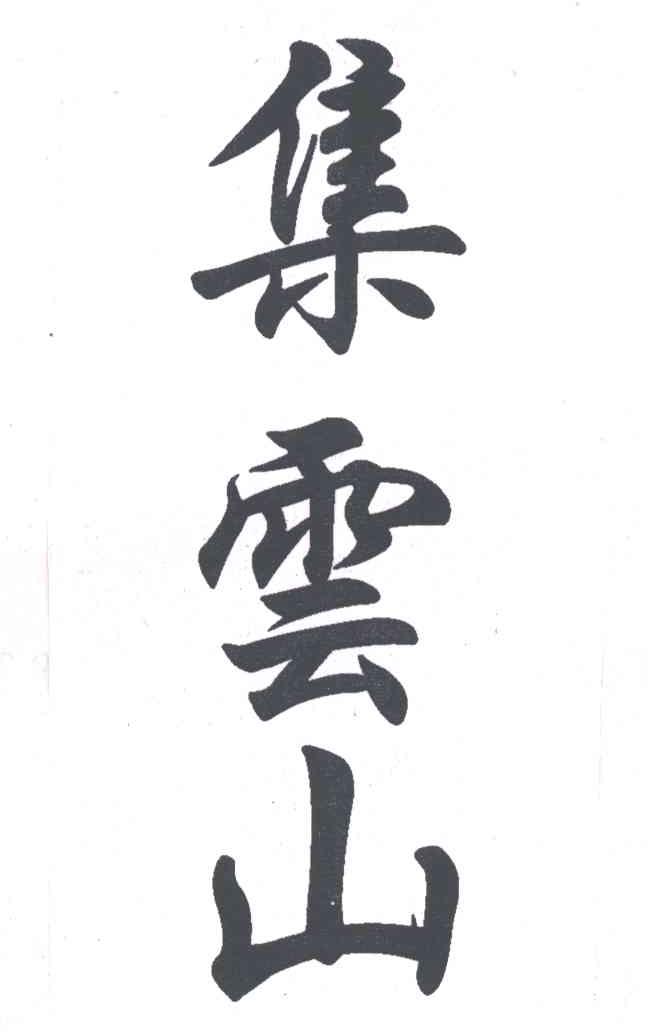 集雲山